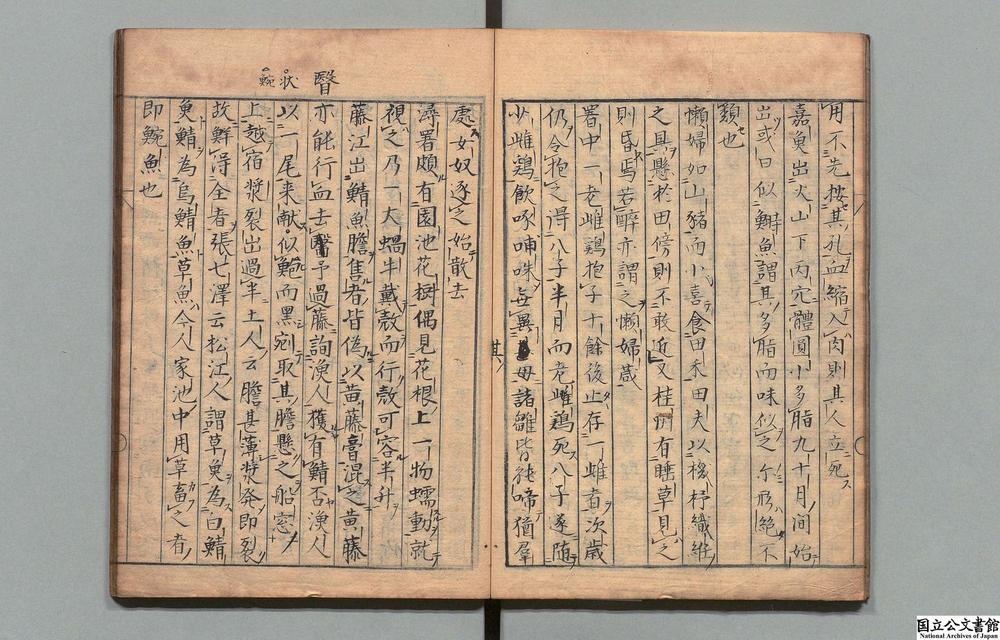 用不先按其孔血縮入肉則其人立死
嘉魚出火山下丙穴體圓小多脂九十月間始
出或曰似鰣魚謂其多脂而味似之尓形絶不
類也
懶婦如山豬而小喜食田禾田夫以機杼織維
之具懸於田傍則不敢近又桂州有睡草見之
則昏焉若醉亦謂之懶婦葴
署中一老雌鷄抱子十餘後止存一雌者次歳
仍令抱之得八子半月而老雌鷄死八子遂随
少雌鷄飲啄哺咮無異母諸雛皆能啼猶羣
其
處女奴逐之始散去
潯署頗有園池花樹偶見花根上一物蠕動就
視之乃一大蝸牛戴殻而行殻可容半升
藤江出鯖魚膽售者皆偽以黄藤膏混之黄藤
亦能行血去醫予過藤詢漁人獲有鯖否漁人
以一尾来献似鯇而黒剜取其膽懸之船窓
上越宿漿裂出過半土人云膽甚薄漿発即裂
故鮮得全者張七澤云松江人謂草魚為白鯖
魚鯖為烏鯖魚草魚今人家池中用草畜之者
即鯇魚也
醫
状
鯇
国立公文書館
National Archives of Japan